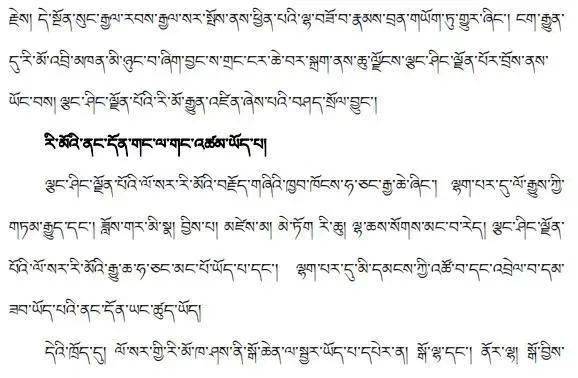 རྗེས། དེ་སྔོན་སུང་རྒྱལ་རབས་རྒྱལ་སར་སྤོས་ནས་ཕྱིན་པའི་ལྷ་བཟོ་བ་རྣམས་བྲན་གཡོག་ཏུ་གྱུར་ཞིང་། ངག་རྒྱུན་
དུ་རི་མོ་འབྲི་མཁན་མི་ཉུང་བ་ཞིག་བྱང་ས་གྲང་ངར་ཆེ་བར་སྐྲག་ནས་ཆུ་ལྗོངས་ལྕང་ཤིང་ལྗོན་པོར་བྲོས་ནས་
ཡོང་བས། ལྕང་ཤིང་ལྗོན་པོའི་རི་མོ་རྒྱུན་འཛིན་ཞེས་པའི་བཤད་སྲོལ་བྱུང་།
རི་མོའི་ནང་དོན་གང་ལ་གང་འཚམ་ཡོད་པ།
ལྕང་ཤིང་ལྗོན་པོའི་ལོ་སར་རི་མོའི་བརྗོད་གཞིའི་ཁྱབ་ཁོངས་ཧ་ཅང་རྒྱ་ཆེ་ཞིང་། ལྷག་པར་དུ་ལོ་རྒྱུས་ཀྱི་
གཏམ་རྒྱུད་དང་། ཟློས་གར་མི་སྣ། བྱིས་པ། མཛེས་མ། མེ་ཏོག རི་ཆུ། ལྷ་ཆས་སོགས་མང་བ་རེད། ལྕང་ཤིང་ལྗོན་
པོའི་ལོ་སར་རི་མོའི་རྒྱུ་ཆ་ཧ་ཅང་མང་པོ་ཡོད་པ་དང་། ལྷག་པར་དུ་མི་དམངས་ཀྱི་འཚོ་བ་དང་འབྲེལ་བ་དམ་
ཟབ་ཡོད་པའི་ནང་དོན་ཡང་ཚུད་ཡོད།
དེའི་ཁྲོད་དུ། ལོ་སར་གྱི་རི་མོ་ཁ་ཤས་ནི་སྒོ་ཆེན་ལ་སྦྱར་ཡོད་པ་དཔེར་ན། སྒོ་ལྷ་དང་། ནོར་ལྷ། སྒོ་བྱིས་